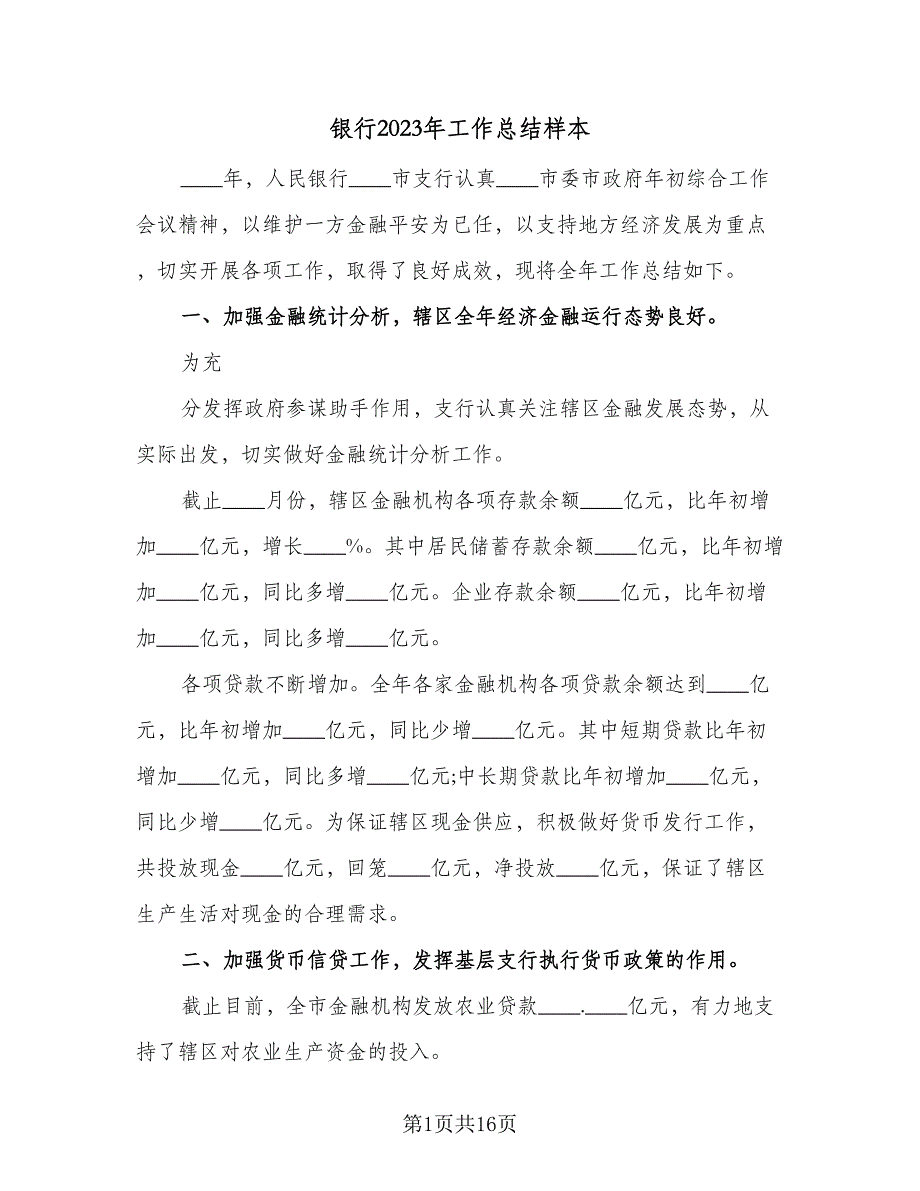 银行2023年工作总结样本
____年，人民银行____市支行认真____市委市政府年初综合工作
会议精神，以维护一方金融平安为已任，以支持地方经济发展为重点
，切实开展各项工作，取得了良好成效，现将全年工作总结如下。
一、加强金融统计分析，辖区全年经济金融运行态势良好。
为充
分发挥政府参谋助手作用，支行认真关注辖区金融发展态势，从
实际出发，切实做好金融统计分析工作。
截止____月份，辖区金融机构各项存款余额____亿元，比年初增
加____亿元，增长____%。其中居民储蓄存款余额____亿元，比年初增
加____亿元，同比多增____亿元。企业存款余额____亿元，比年初增
加____亿元，同比多增____亿元。
各项贷款不断增加。全年各家金融机构各项贷款余额达到____亿
元，比年初增加____亿元，同比少增____亿元。其中短期贷款比年初
增加____亿元，同比多增____亿元;中长期贷款比年初增加____亿元，
同比少增____亿元。为保证辖区现金供应，积极做好货币发行工作，
共投放现金____亿元，回笼____亿元，净投放____亿元，保证了辖区
生产生活对现金的合理需求。
二、加强货币信贷工作，发挥基层支行执行货币政策的作用。
截止目前，全市金融机构发放农业贷款____.____亿元，有力地支
持了辖区对农业生产资金的投入。
第1页共16页